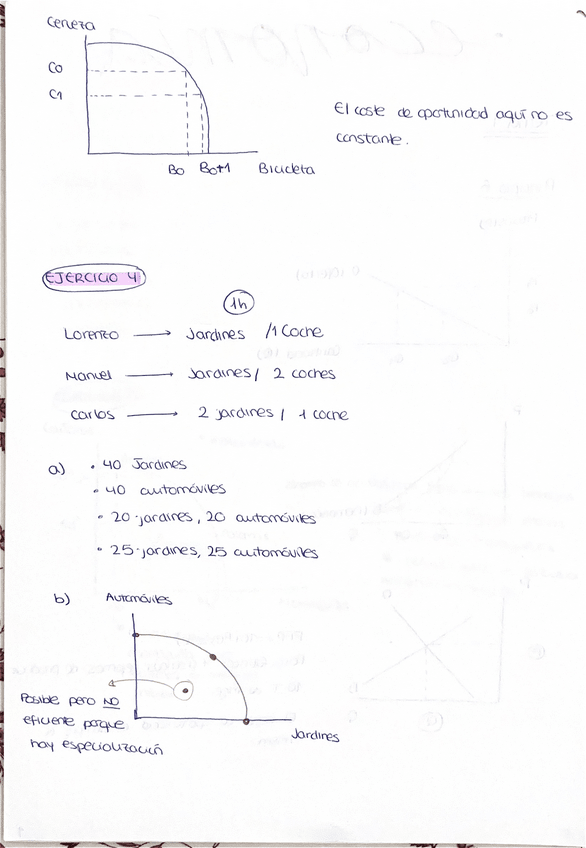 Cerveza
C0
C1
El coste de oportunidad aquí no es
constante.
B0 B0+1 Bicicleta
EJERCICIO 4
1h
Lorenzo → Jardines /1 Coche
Manuel → Jardines / 2 coches
Carlos → 2 jardines / 1 coche
a) • 40 Jardines
• 40 automóviles
• 20 jardines, 20 automóviles
• 25 jardines, 25 automóviles
b) Automóviles
Posible pero NO
eficiente porque
hay especialización
Jardines